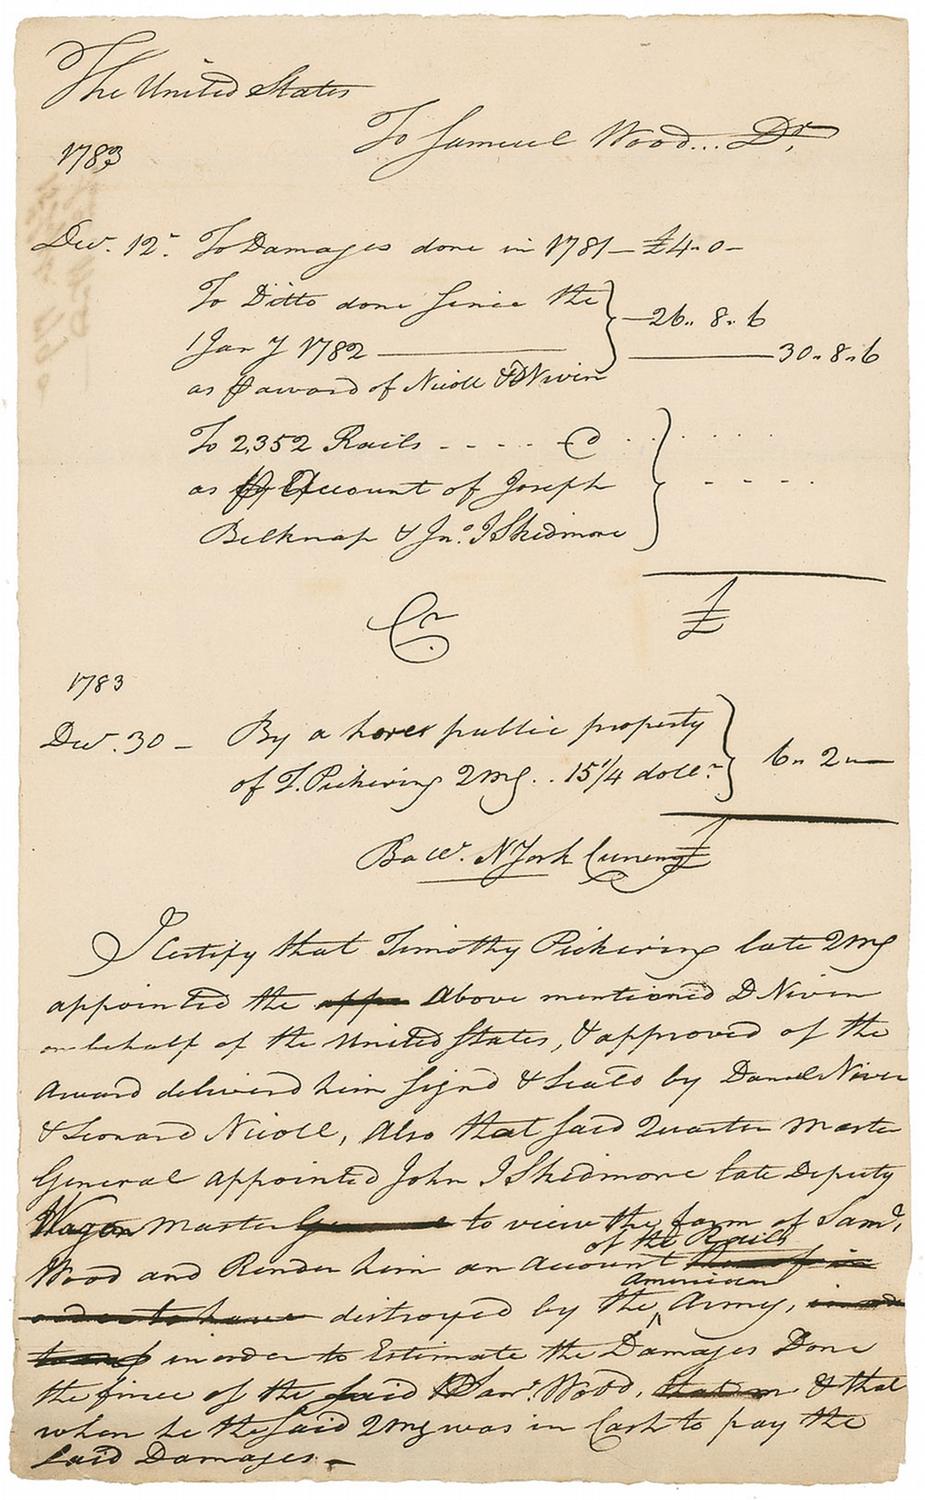 The United States
To Samuel Wood... Dr.
1783
Decr. 12. To Damages done in 1781 — £4.. 0 —
To Ditto done Since the
1 Jany 1782 — 26.. 8.. 6
30.. 8.. 6
as ⅌ award of Nicoll & D Niven
To 2,352 Rails - - - - @ . . . . . .
as ⅌ Account of Joseph - - - -
Belknap & Jno. I Skidmore
£
Cr.
1783
Decr. 30 — By a horse public property
of T. Pickering 2mg .. 15 1/4 dollr. 6.. 2..—
Balle. N York Curency £
I Certify that Timothy Pickering late 2mg
appointed the appo Above mentioned D Niven
on behalf of the United States, & approved of the
Award deliverd him Signd & Seald by Daniel Niven
& Leonard Nicoll, Also that Said Quarter Master
General appointed John I Skidmore late Deputy
Wagon Master General to view the farm of Saml.
of the Rails
Wood and Render him an Account thereof in
American
order to have distroyed by the ^ Army, in order
in order to Estimate the Damages Done
the fince of the Said Saml. Wood, that & that
when he the Said 2mg was in Cash to pay the
Said Damages. —